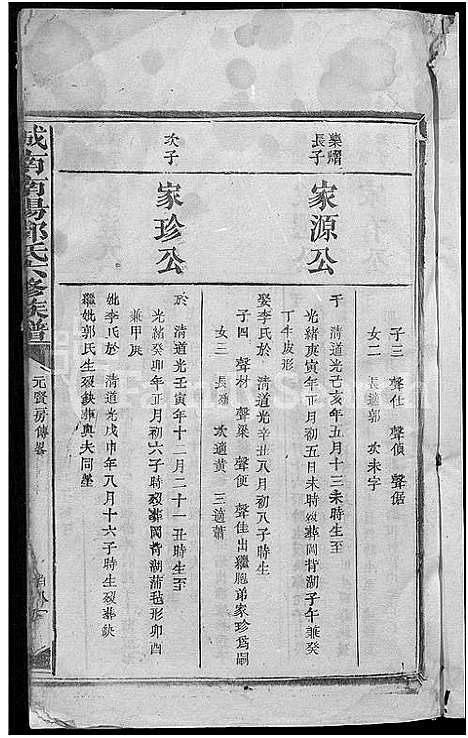 子三 聲仕 聲偵 聲倨
女二 長適郭 次未字
榮燿長子
家源公
于 清道光己亥年五月十三未時生至
光緒庚寅年正月初五日未時歿葬岡背湖子午兼癸
丁牛皮形
娶李氏於 清道光辛丑八月初八子時生
子四 聲材 聲梁 聲便 聲佳出繼胞弟家珍爲嗣
女三 長適 次適黃 三適蕭
次子
家珍公
於 清道光壬寅年十二月二十一丑時生至
光緒癸卯年正月初六子時歿葬岡背湖蒲毡形卯酉
兼甲庚
妣李氏於 清道光戊申年八月十六子時生歿葬缺
繼妣郭氏生歿缺葬與夫同塋
城南南陽郭氏六修族譜
元啓房傳畧